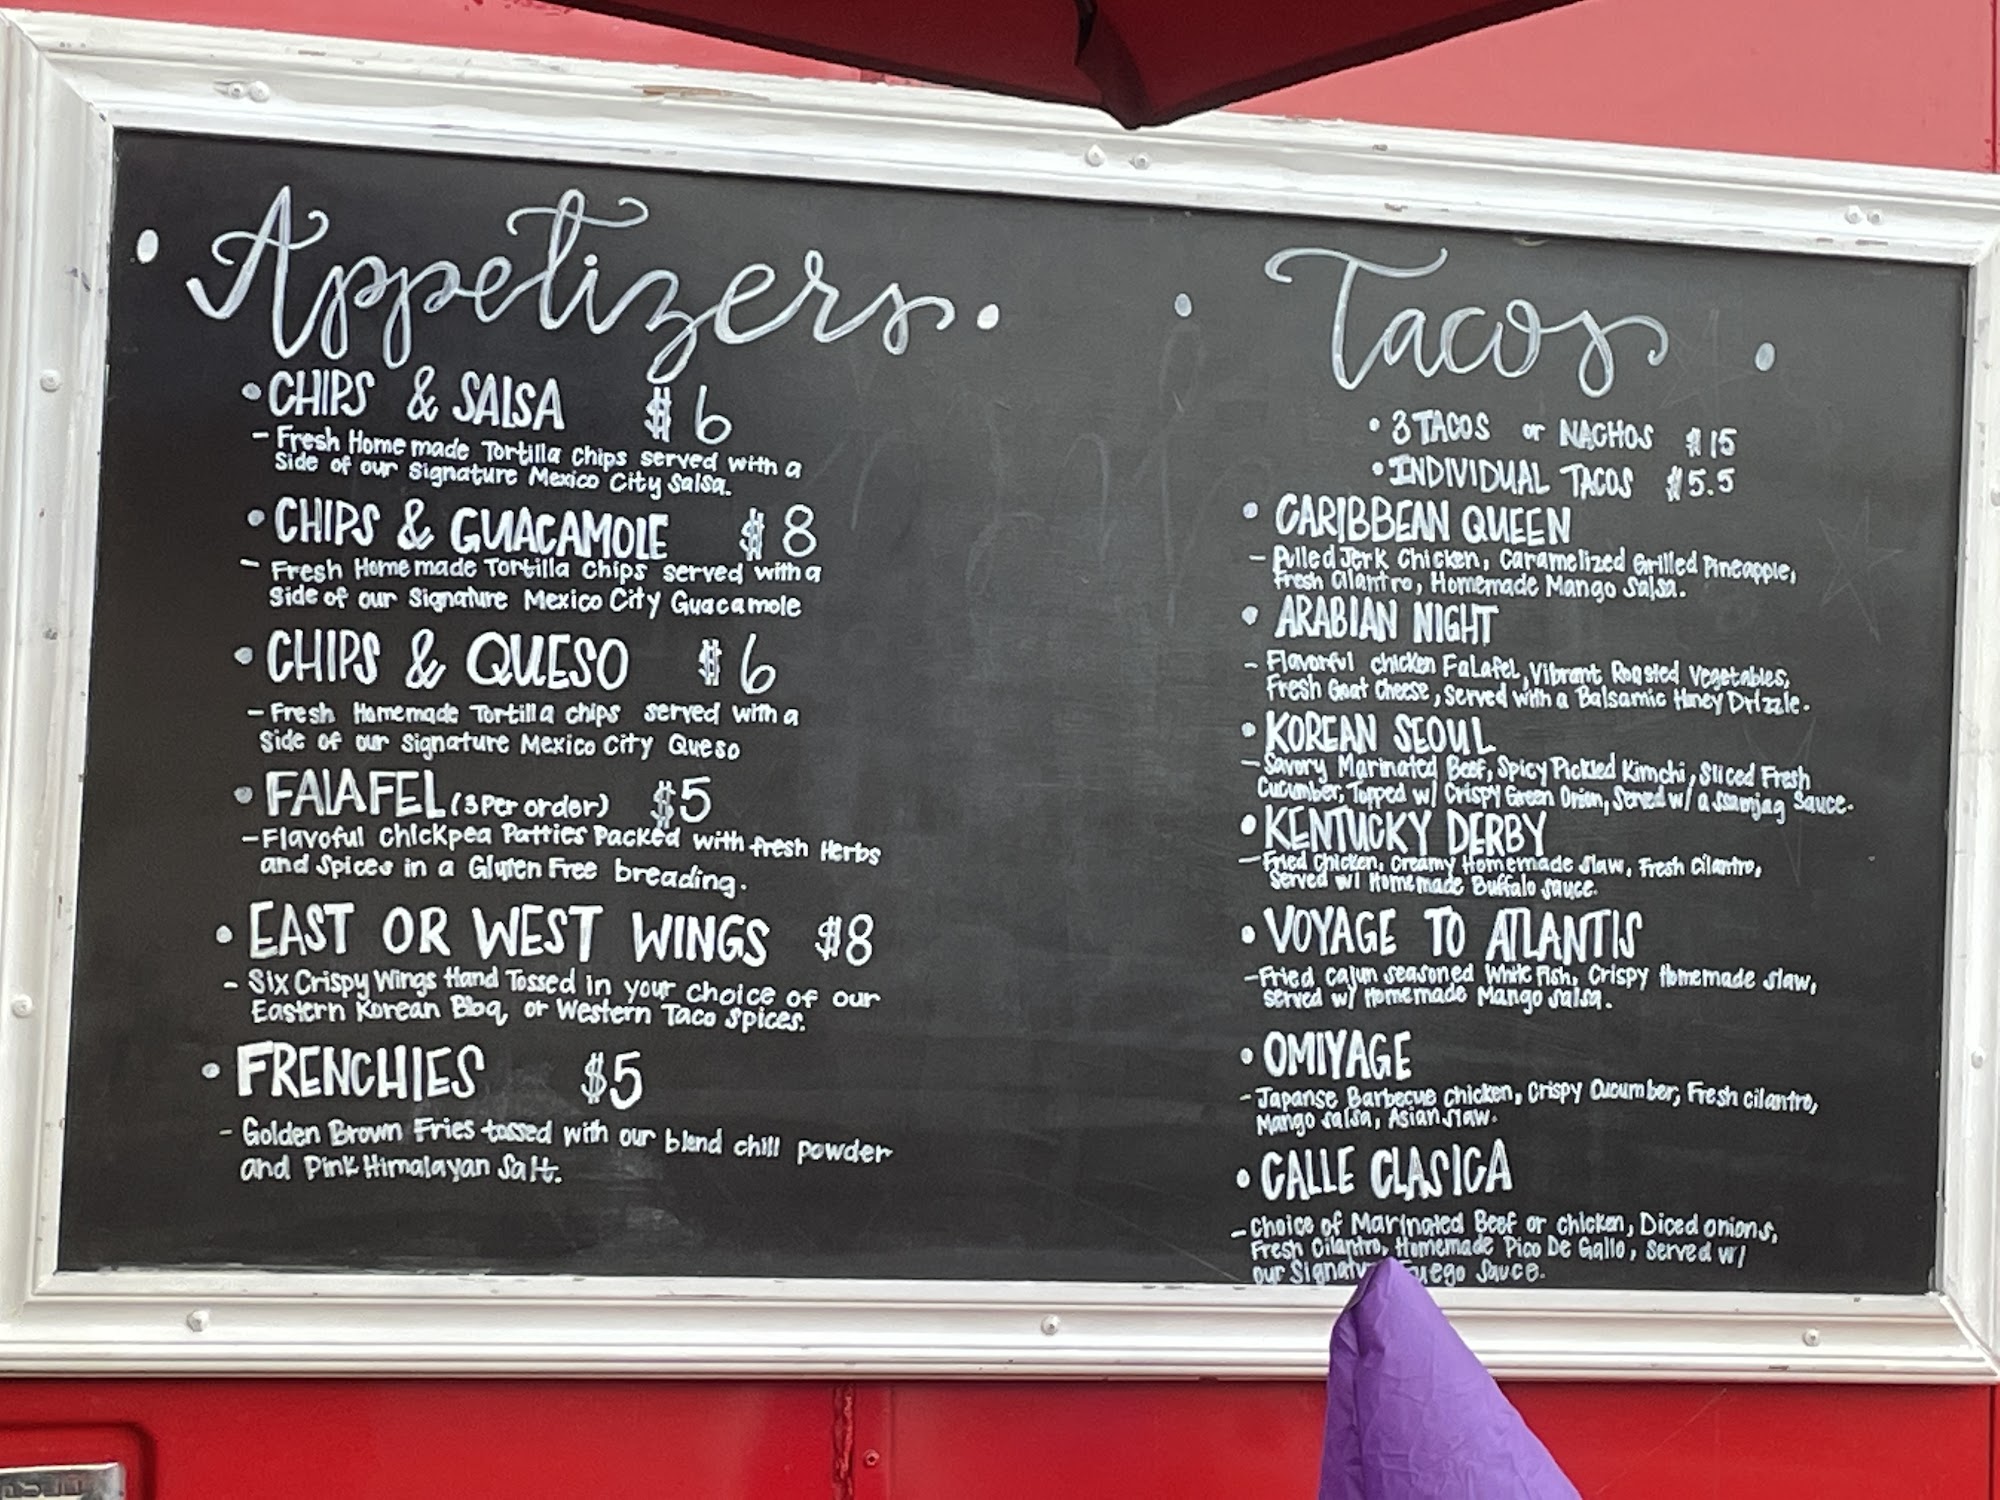 Appetizers
• CHIPS & SALSA $6
- Fresh Homemade Tortilla chips served with a
side of our signature Mexico City Salsa.
• CHIPS & GUACAMOLE $8
- Fresh Homemade Tortilla Chips served with a
side of our signature Mexico City Guacamole
• CHIPS & QUESO $6
- Fresh Homemade Tortilla chips served with a
side of our Signature Mexico City Queso
• FALAFEL (3 Per order) $5
- Flavoful chickpea Patties Packed with fresh Herbs
and Spices in a Gluten Free breading.
• EAST OR WEST WINGS $8
- Six Crispy Wings Hand Tossed in your choice of our
Eastern Korean Bbq, or Western Taco Spices.
• FRENCHIES $5
- Golden Brown Fries tossed with our blend chill powder
and Pink Himalayan Salt.
• Tacos •
• 3 TACOS or NACHOS $15
• INDIVIDUAL TACOS $5.5
• CARIBBEAN QUEEN
- Pulled Jerk Chicken, Caramelized Grilled Pineapple,
Fresh Cilantro, Homemade Mango Salsa.
• ARABIAN NIGHT
- Flavorful chicken Falafel, Vibrant Roasted Vegetables,
Fresh Goat Cheese, Served with a Balsamic Honey Drizzle.
• KOREAN SEOUL
- Savory Marinated Beef, Spicy Pickled Kimchi, Sliced Fresh
Cucumber, Topped w/ Crispy Green Onion, Served w/ a Ssamjag Sauce.
• KENTUCKY DERBY
- Fried Chicken, Creamy Homemade Slaw, Fresh Cilantro,
Served w/ Homemade Buffalo Sauce.
• VOYAGE TO ATLANTIS
- Fried Cajun seasoned White Fish, Crispy Homemade slaw,
served w/ Homemade Mango Salsa.
• OMIYAGE
- Japanse Barbecue chicken, Crispy Cucumber, Fresh cilantro,
Mango salsa, Asian slaw.
• CALLE CLASICA
- Choice of Marinated Beef or chicken, Diced onions,
Fresh Cilantro, Homemade Pico De Gallo, Served w/
our Signatu uego Sauce.